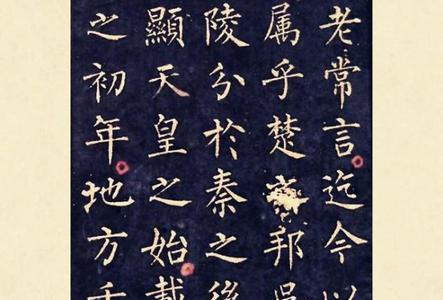 老常言迄今以
属乎楚邦
陵分於秦之後
顯天皇之始載
之初年地方千